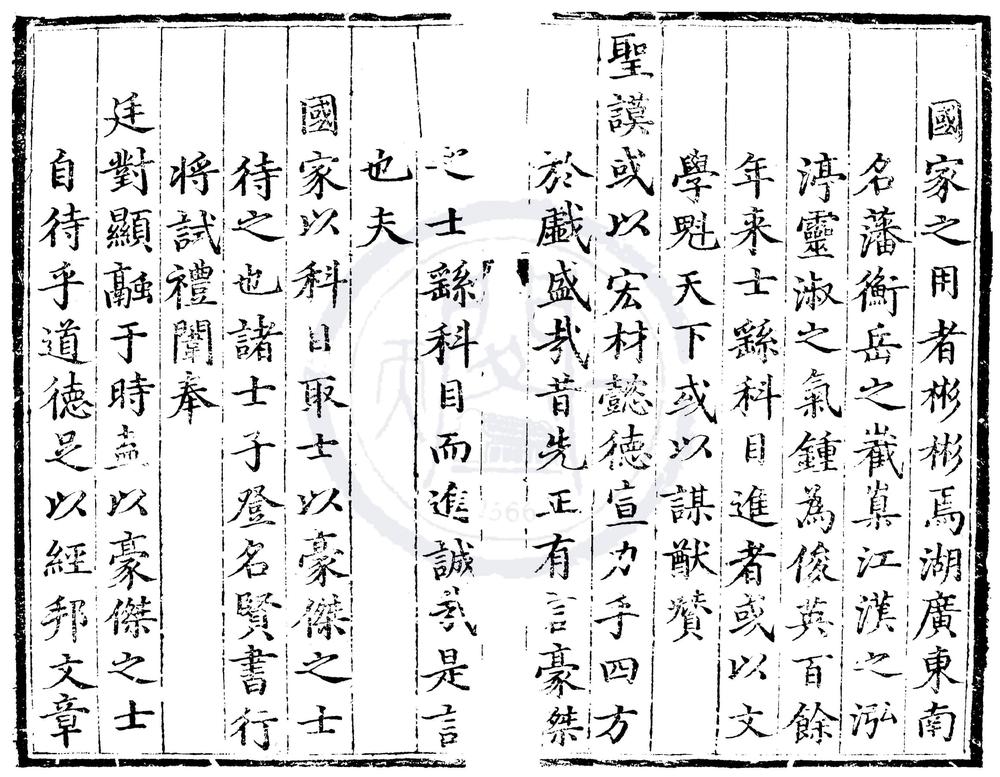 國家之用者彬彬焉湖廣東南
名藩衡岳之巀嶪江漢之泓
渟靈淑之氣鍾為俊英百餘
年来士繇科目進者或以文
學魁天下或以謀猷贊
聖謨或以宏材懿德宣力乎四方
於戲盛㢤昔先正有言豪桀
之士繇科目而進誠㢤是言
也夫
國家以科目取士以豪傑之士
待之也諸士子登名賢書行
将試禮闈奉
廷對顯融于時盍以豪傑之士
自待乎道德足以經邦文章